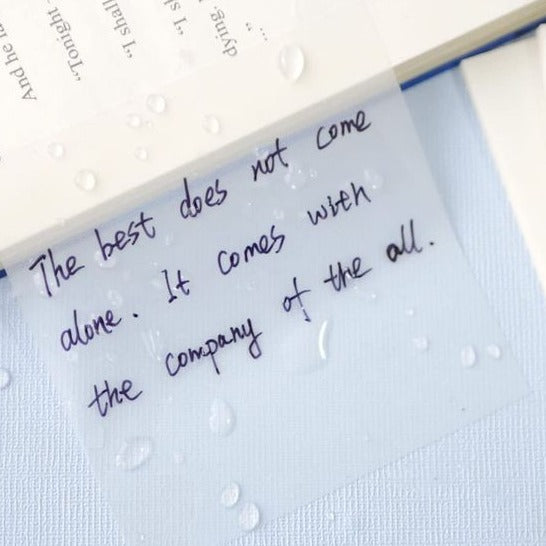 The best does not come
alone. It comes with
the company of the all.
And he la
"Tonight
"I shall
"I sh
dying.
..."